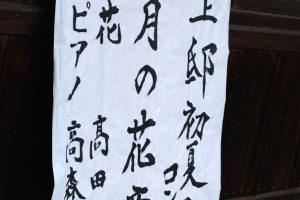 上邸初夏
コン
月の花
花 高田
ピアノ 高森